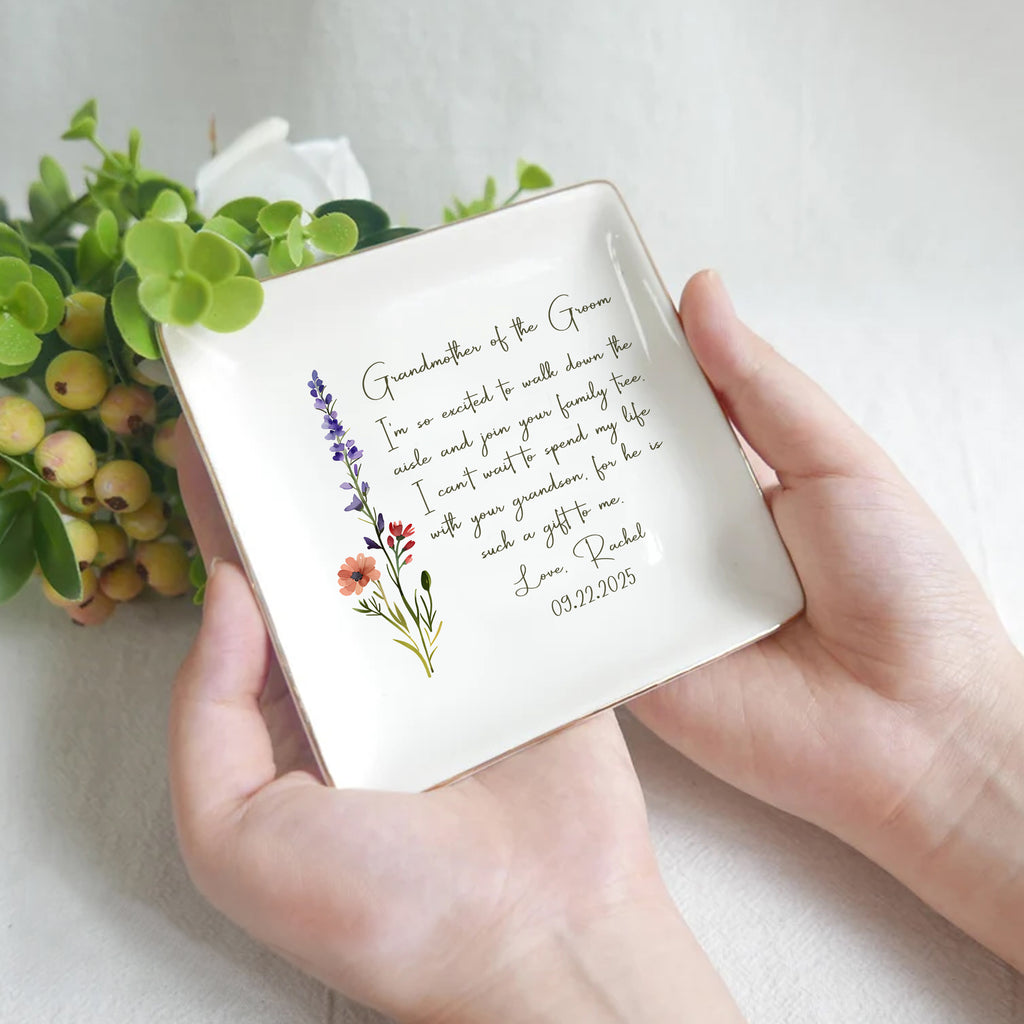 Grandmother of the Groom
I'm so excited to walk down the
aisle and join your family tree.
I can't wait to spend my life
with your grandson, for he is
such a gift to me.
Love, Rachel
09.22.2025